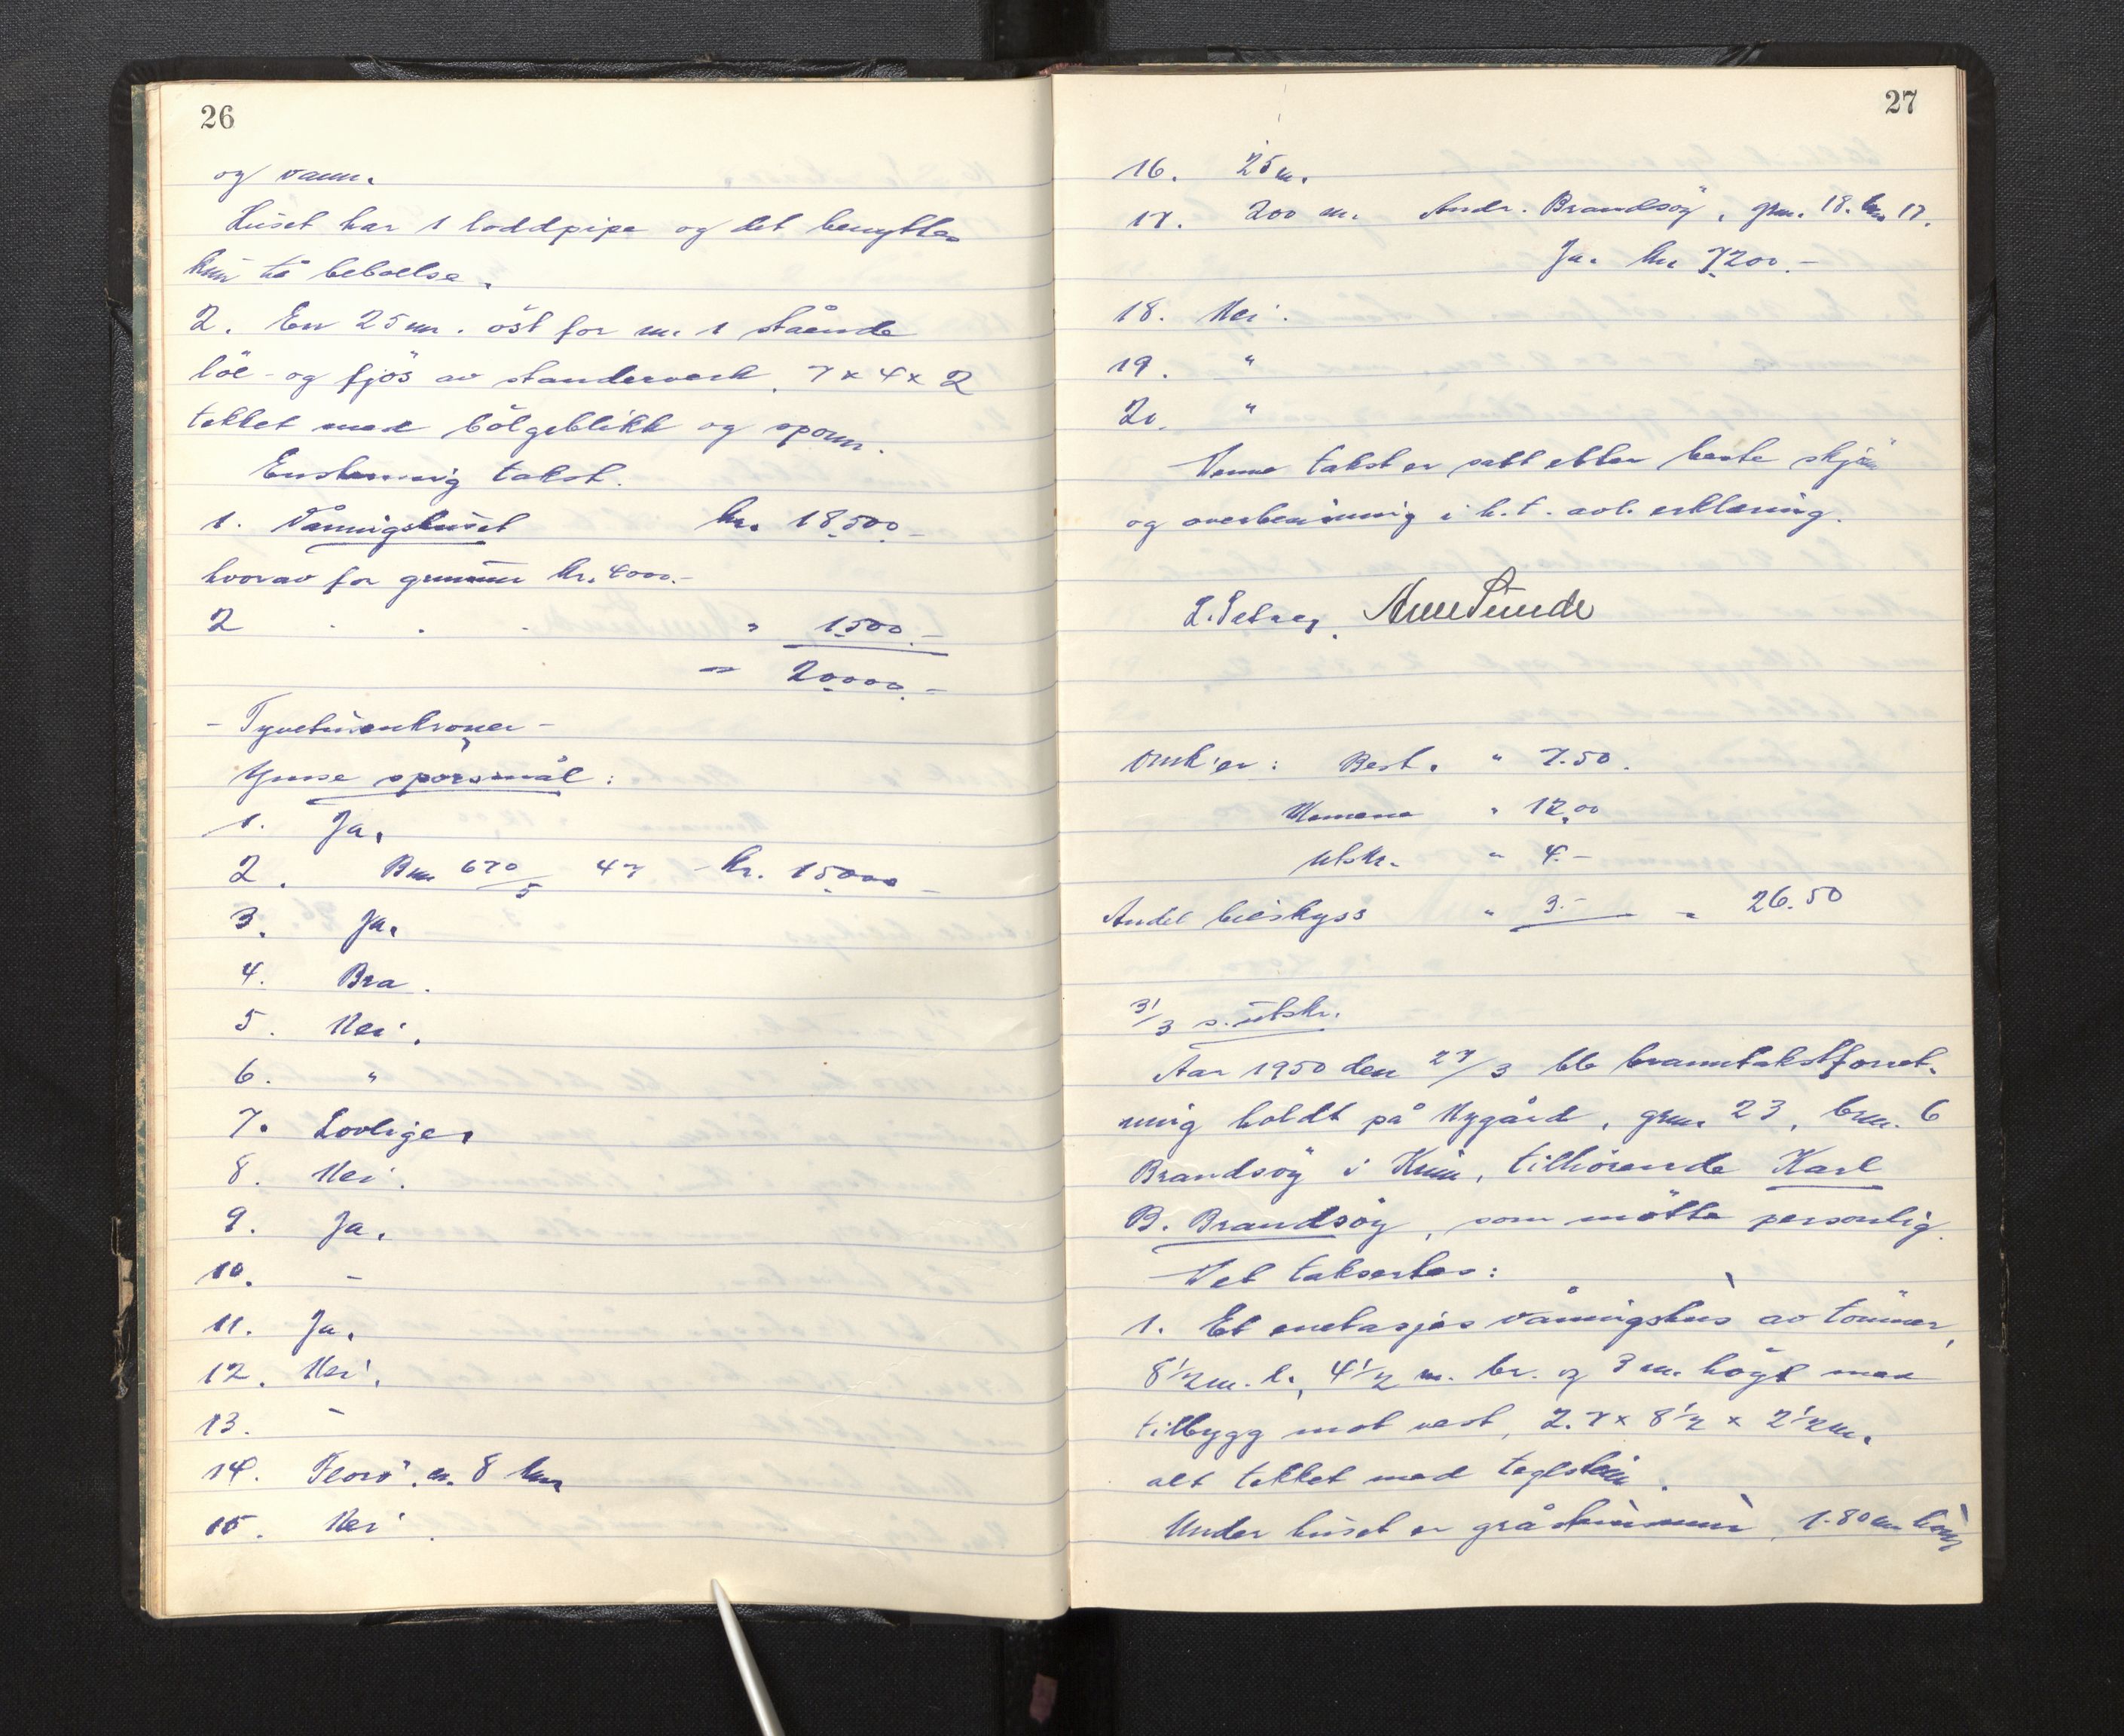 26
og vann.
Huset har 1 loddpipe og det benyttes
kun til beboelse.
2. En 25 m. öst for nr. 1 stående
löe- og fjös av standerverk, 7 x 4 x 2
tekket med bölgeblikk og sponn.
Enstemmig takst.
1. Våningshuset kr. 18.500.-
hvorav for grunnmur kr. 4000.-
2 . . . " 1.500.-
= 20.000.-
- Tyvetusenkroner -
Ymse spörsmål:
1. Ja.
2. Bnr 670/5 47 - kr. 15.000 -
3. Ja.
4. Bra.
5. Nei.
6. "
7. Lovlige.
8. Nei.
9. Ja.
10. -
11. Ja.
12. Nei.
13. -
14. Florö, ca. 8 km
15. Nei.
27
16. 25 m.
17. 200 m. Andr. Brandsöy, gnr. 18. bnr 17.
Ja. kr 7.200.-
18. Nei.
19. "
20. "
Denne takst er satt etter beste skjön
og overbevisning i h.t. avl. erklæring.
Arne Sunde
Omk'er: Best. " 7.50.
Mennene " 12.00
utskr. " 4.-
Andel bilskyss " 3.- = 26.50
31/3 s. utskr.
Aar 1950 den 27/3 ble branntakstforret-
ning holdt på Nygård, gnr. 23, bnr. 6
Brandsöy i Kinn, tilhörende Karl
B. Brandsöy, som mötte personlig.
Det taksertes:
1. Et enetasjes våningshus av tömmer,
8 1/2 m. l., 4 1/2 m. br. og 3 m. högt med
tilbygg mot vest, 2.7 x 8 1/2 x 2 1/2 m.
alt tekket med teglstein.
Under huset er gråsteinsmur, 1.80 m höy